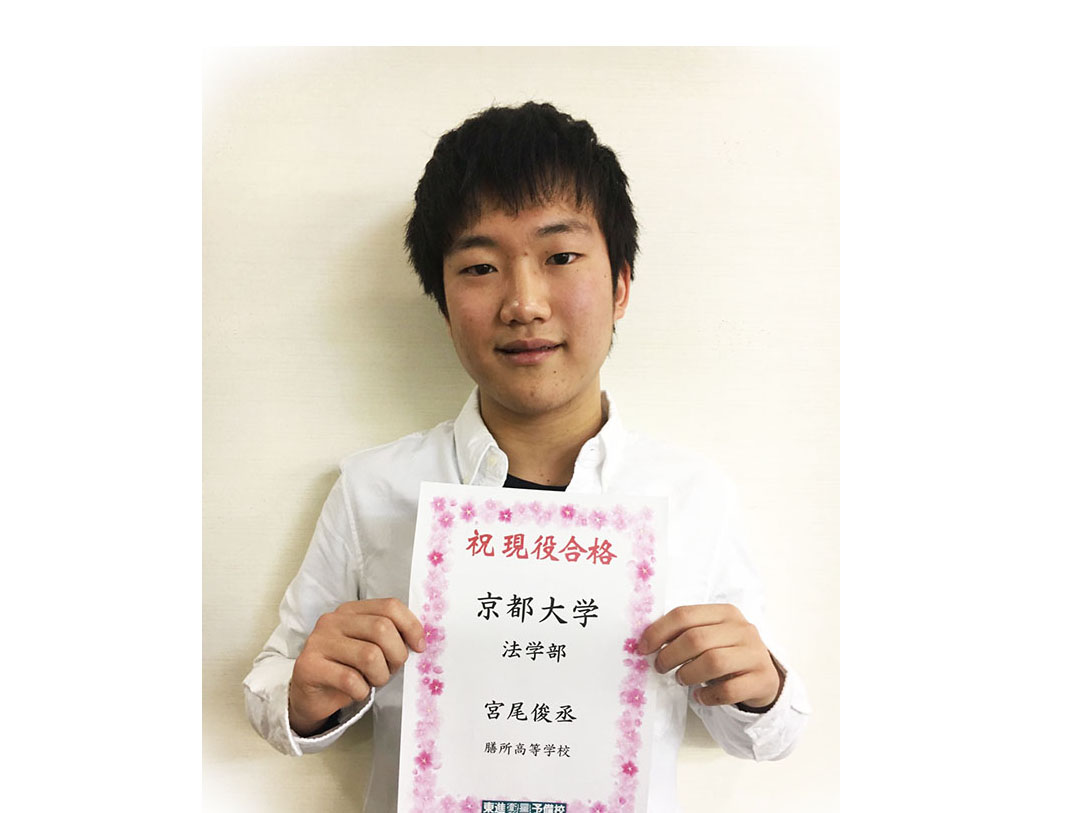 祝 現役合格
京都大学
法学部
宮尾俊丞
膳所高等学校
東進衛星予備校